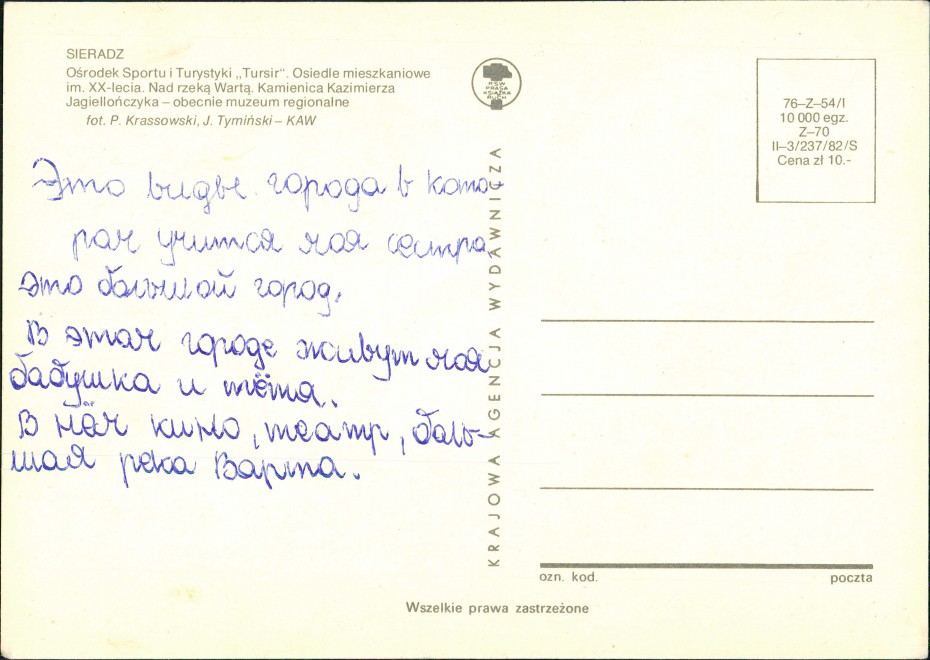 SIERADZ
Ośrodek Sportu i Turystyki „Tursir". Osiedle mieszkaniowe
im. XX-lecia. Nad rzeką Wartą. Kamienica Kazimierza
Jagiellończyka – obecnie muzeum regionalne
fot. P. Krassowski, J. Tymiński – KAW
RSW
PRASA
KSIĄŻKA
RUCH
76–Z–54/I
10 000 egz.
Z–70
II–3/237/82/S
Cena zł 10.-
Это видве города в кото-
рам учится моя сестра.
это большой город.
В этам городе живут моя
бабушка и тётя.
В нём кино, театр, боль-
шая река Варта.
KRAJOWA AGENCJA WYDAWNICZA
ozn. kod.
poczta
Wszelkie prawa zastrzeżone